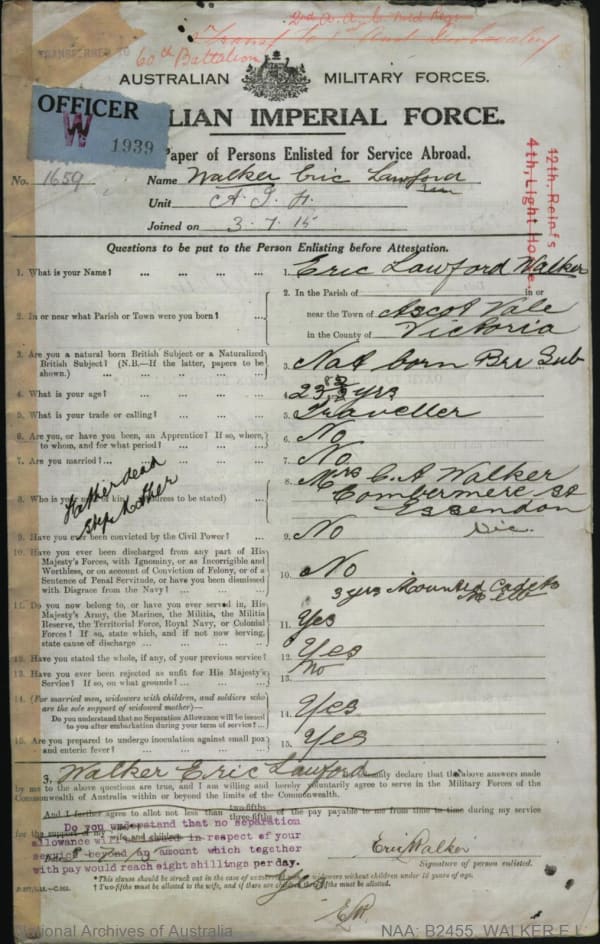 2nd A. A. C. Mtd Regt
TRANSFERRED TO
60th Battalion
AUSTRALIAN MILITARY FORCES.
OFFICER
W 1939
LIAN IMPERIAL FORCE.
Paper of Persons Enlisted for Service Abroad.
No. 1659
Name Walker Eric Lawford
Unit A. I. F.
Joined on 3. 7. 15
12th. Reinf's
4th, Light Horse.
Questions to be put to the Person Enlisting before Attestation.
1. What is your Name? ... ... ... ...
1. Eric Lawford Walker
2. In or near what Parish or Town were you born? ...
2. In the Parish of in or
near the Town of Ascot Vale
in the County of Victoria
3. Are you a natural born British Subject or a Naturalized
British Subject? (N.B.—If the latter, papers to be
shown.) ... ... ... ... ...
3. Nat born Bri Sub
4. What is your age? ... ... ... ...
4. 23 yrs
5. What is your trade or calling? ... ... ...
5. Traveller
6. Are you, or have you been, an Apprentice? If so, where,
to whom, and for what period? ... ... ...
6. No
7. Are you married? ... ... ... ...
7. No
Father dead
Step Mother
8. Who is your of kin? (Address to be stated) ...
8. Mrs C. A Walker
Combermere St
Essendon
Vic.
9. Have you ever been convicted by the Civil Power? ...
9. No
10. Have you ever been discharged from any part of His
Majesty's Forces, with Ignominy, or as Incorrigible and
Worthless, or on account of Conviction of Felony, or of a
Sentence of Penal Servitude, or have you been dismissed
with Disgrace from the Navy? ... ... ...
10. No
3 yrs Mounted Cadets
11. Do you now belong to, or have you ever served in, His
Majesty's Army, the Marines, the Militia, the Militia
Reserve, the Territorial Force, Royal Navy, or Colonial
Forces? If so, state which, and if not now serving,
state cause of discharge ... ... ...
11. Yes
12. Have you stated the whole, if any, of your previous service?
12. Yes
13. Have you ever been rejected as unfit for His Majesty's
Service? If so, on what grounds? ... ... ...
13. No
14. (For married men, widowers with children, and soldiers who
are the sole support of widowed mother)—
Do you understand that no Separation Allowance will be issued
to you after embarkation during your term of service? ...
14. Yes
15. Are you prepared to undergo inoculation against small pox
and enteric fever? ... ... ... ...
15. Yes
I, Walker Eric Lawford solemnly declare that the above answers made
by me to the above questions are true, and I am willing and hereby voluntarily agree to serve in the Military Forces of the
Commonwealth of Australia within or beyond the limits of the Commonwealth.
And I further agree to allot not less than two-fifths three-fifths of the pay payable to me from time to time during my service
for the support of my wife and children
Do you understand that no separation
allowance will in respect of your
service beyond an amount which together
with pay would reach eight shillings per day.
Eric Walker
Signature of person enlisted.
*This clause should be struck out in the case of unmarried men or widowers without children under 18 years of age.
† Two-fifths must be allotted to the wife, and if there are children three-fifths must be allotted.
National Archives of Australia
NAA: B2455, WALKER E L